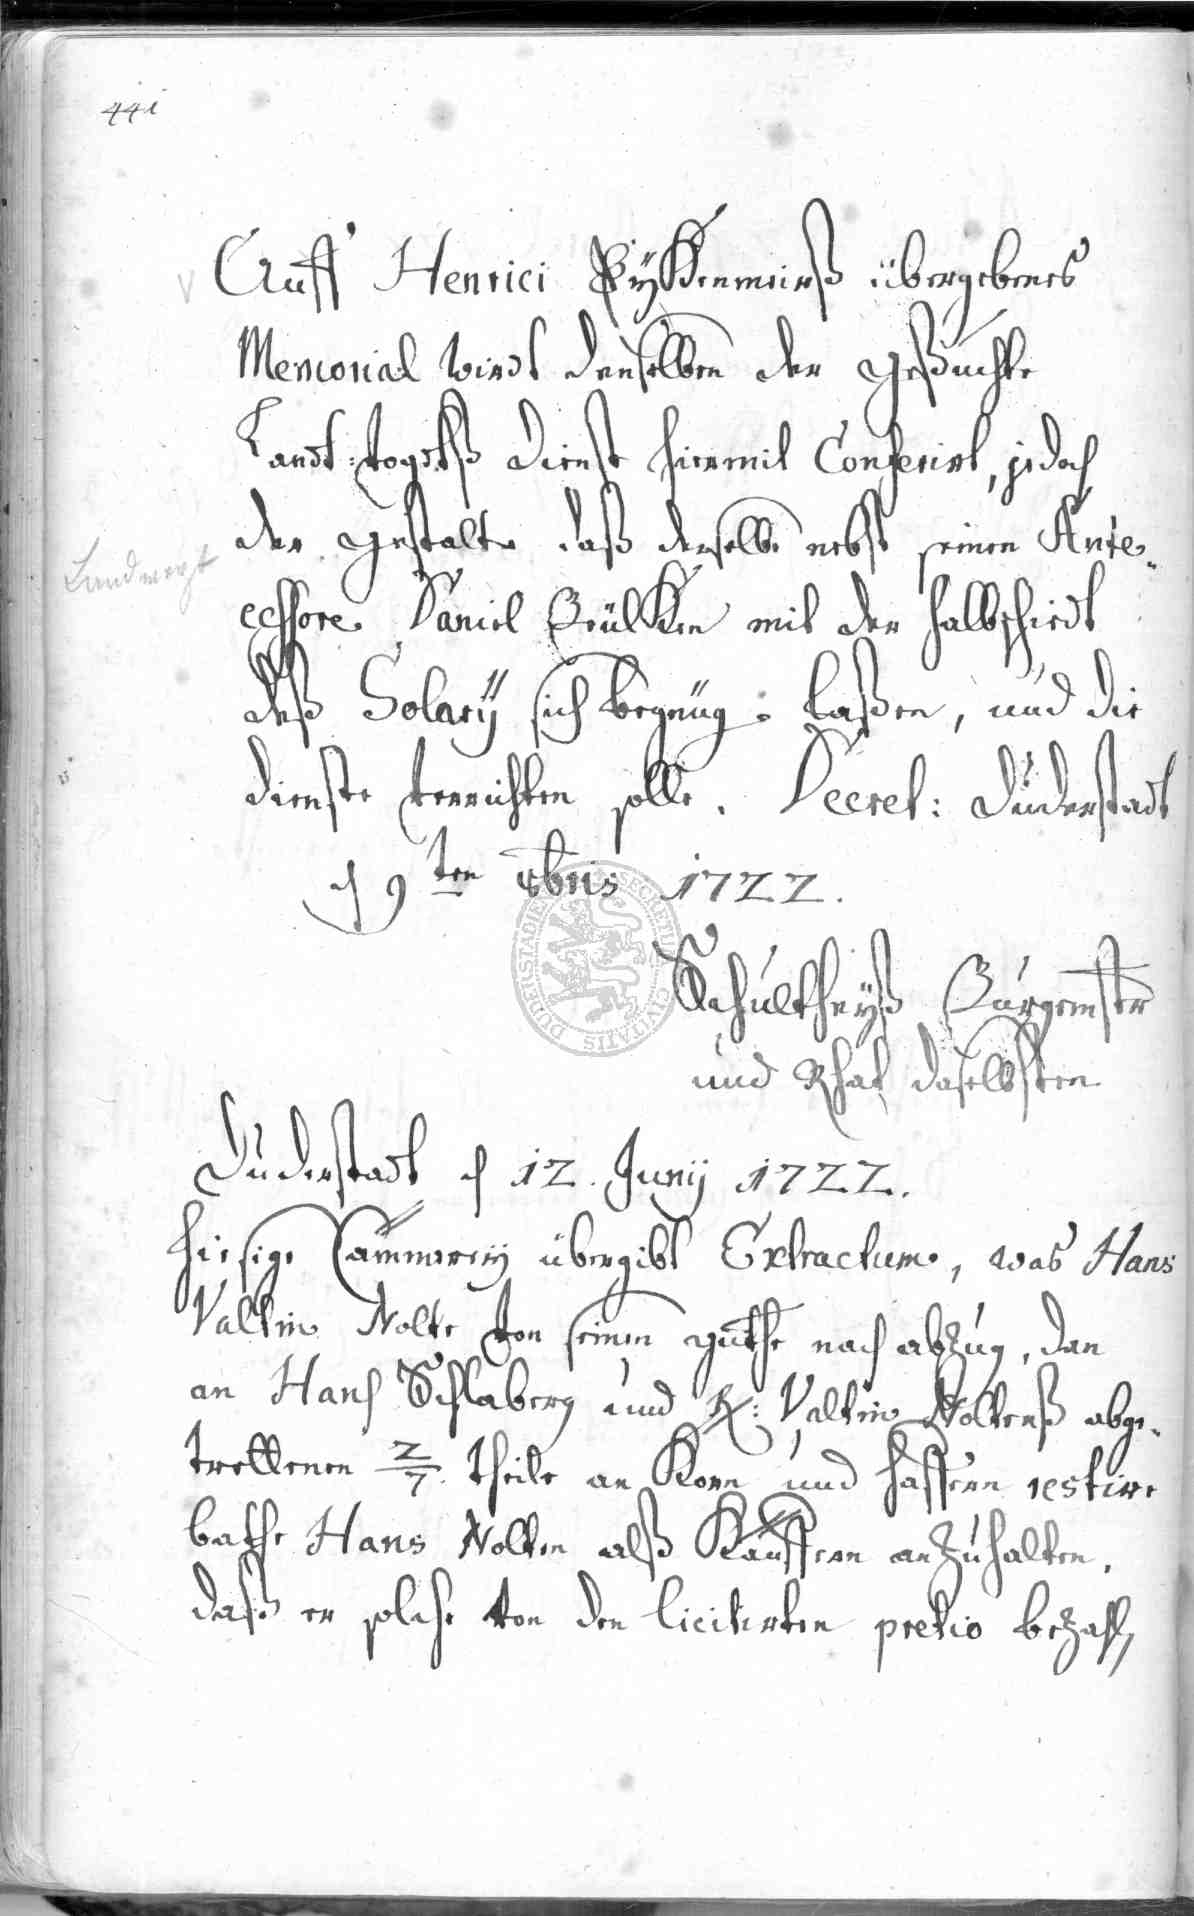 441
Auff Henrici übergebenes
Memorial wirdt demselben der gesuchte
Landt-vogdtß dienst hiermit Conferirt, jedoch
der gestalt daß derselbe nebst seinen Ante-
Landvogt
cessore Daniel Brülken mit der halbschiedt
deß Solary sich begnüg: laßen, und die
dienste verrichten solle. Decret: Duderstadt
d 9ten 8bris 1722.
Schultheyß Burgemstr
und Rhat daselbsten
Duderstadt d 12. Juny 1722.
hiesige Cammerey übergibt Extractum, was Hans
Valtin Nolte von seinem guthe nach abzug, den
an Hanß Schlaberg und R: Valtin Noltenß abge-
trettenen 2/7. theile an Korn und haffern restire
bathe Hans Nolten alß Käuffern anzuhalten,
daß er solche von den licitirten pretio bezahl,
SECRETUM CIVITATIS DUDERSTADIE